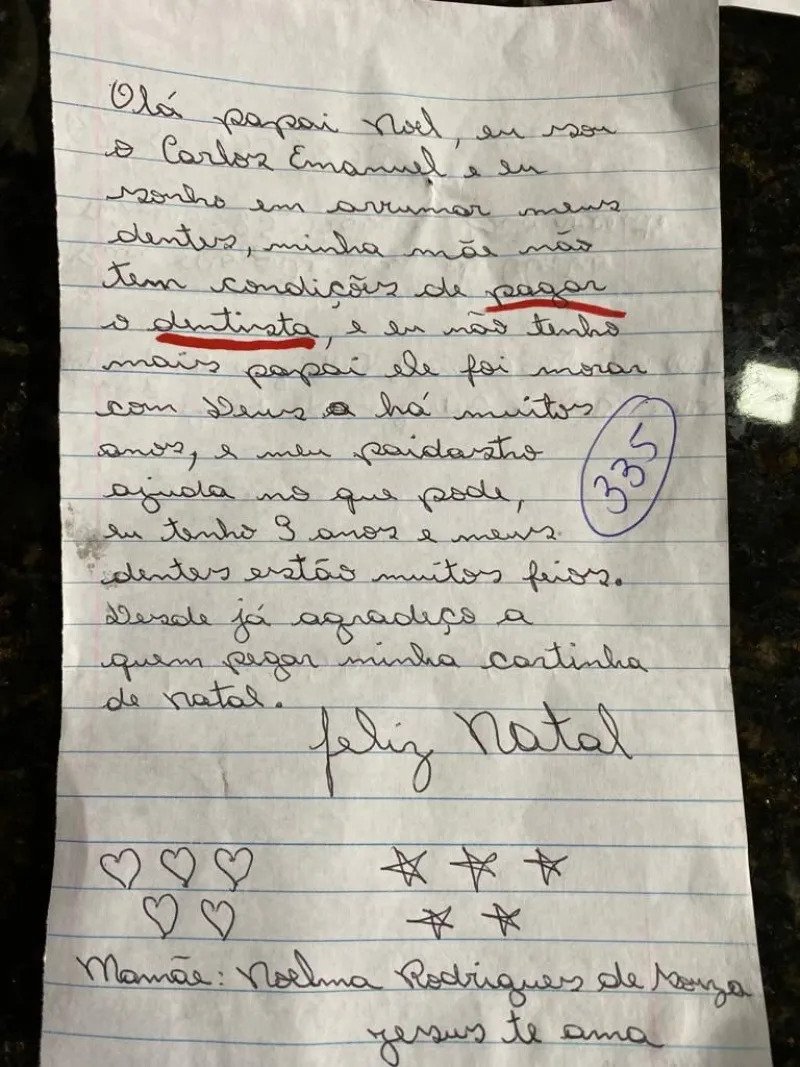 Olá papai Noel, eu sou
o Carlos Emanuel e eu
sonho em arrumar meus
dentes, minha mãe não
tem condições de pagar
o dentista, e eu não tenho
mais papai ele foi morar
com Deus a há muitos
anos, e meu paidastho
ajuda no que pode,
eu tenho 9 anos e meus
dentes estão muitos feios.
Desde já agradeço a
quem pegar minha cartinha
de natal.
feliz Natal
335
Mamãe: Noelma Rodrigues de Souza
Jesus te ama